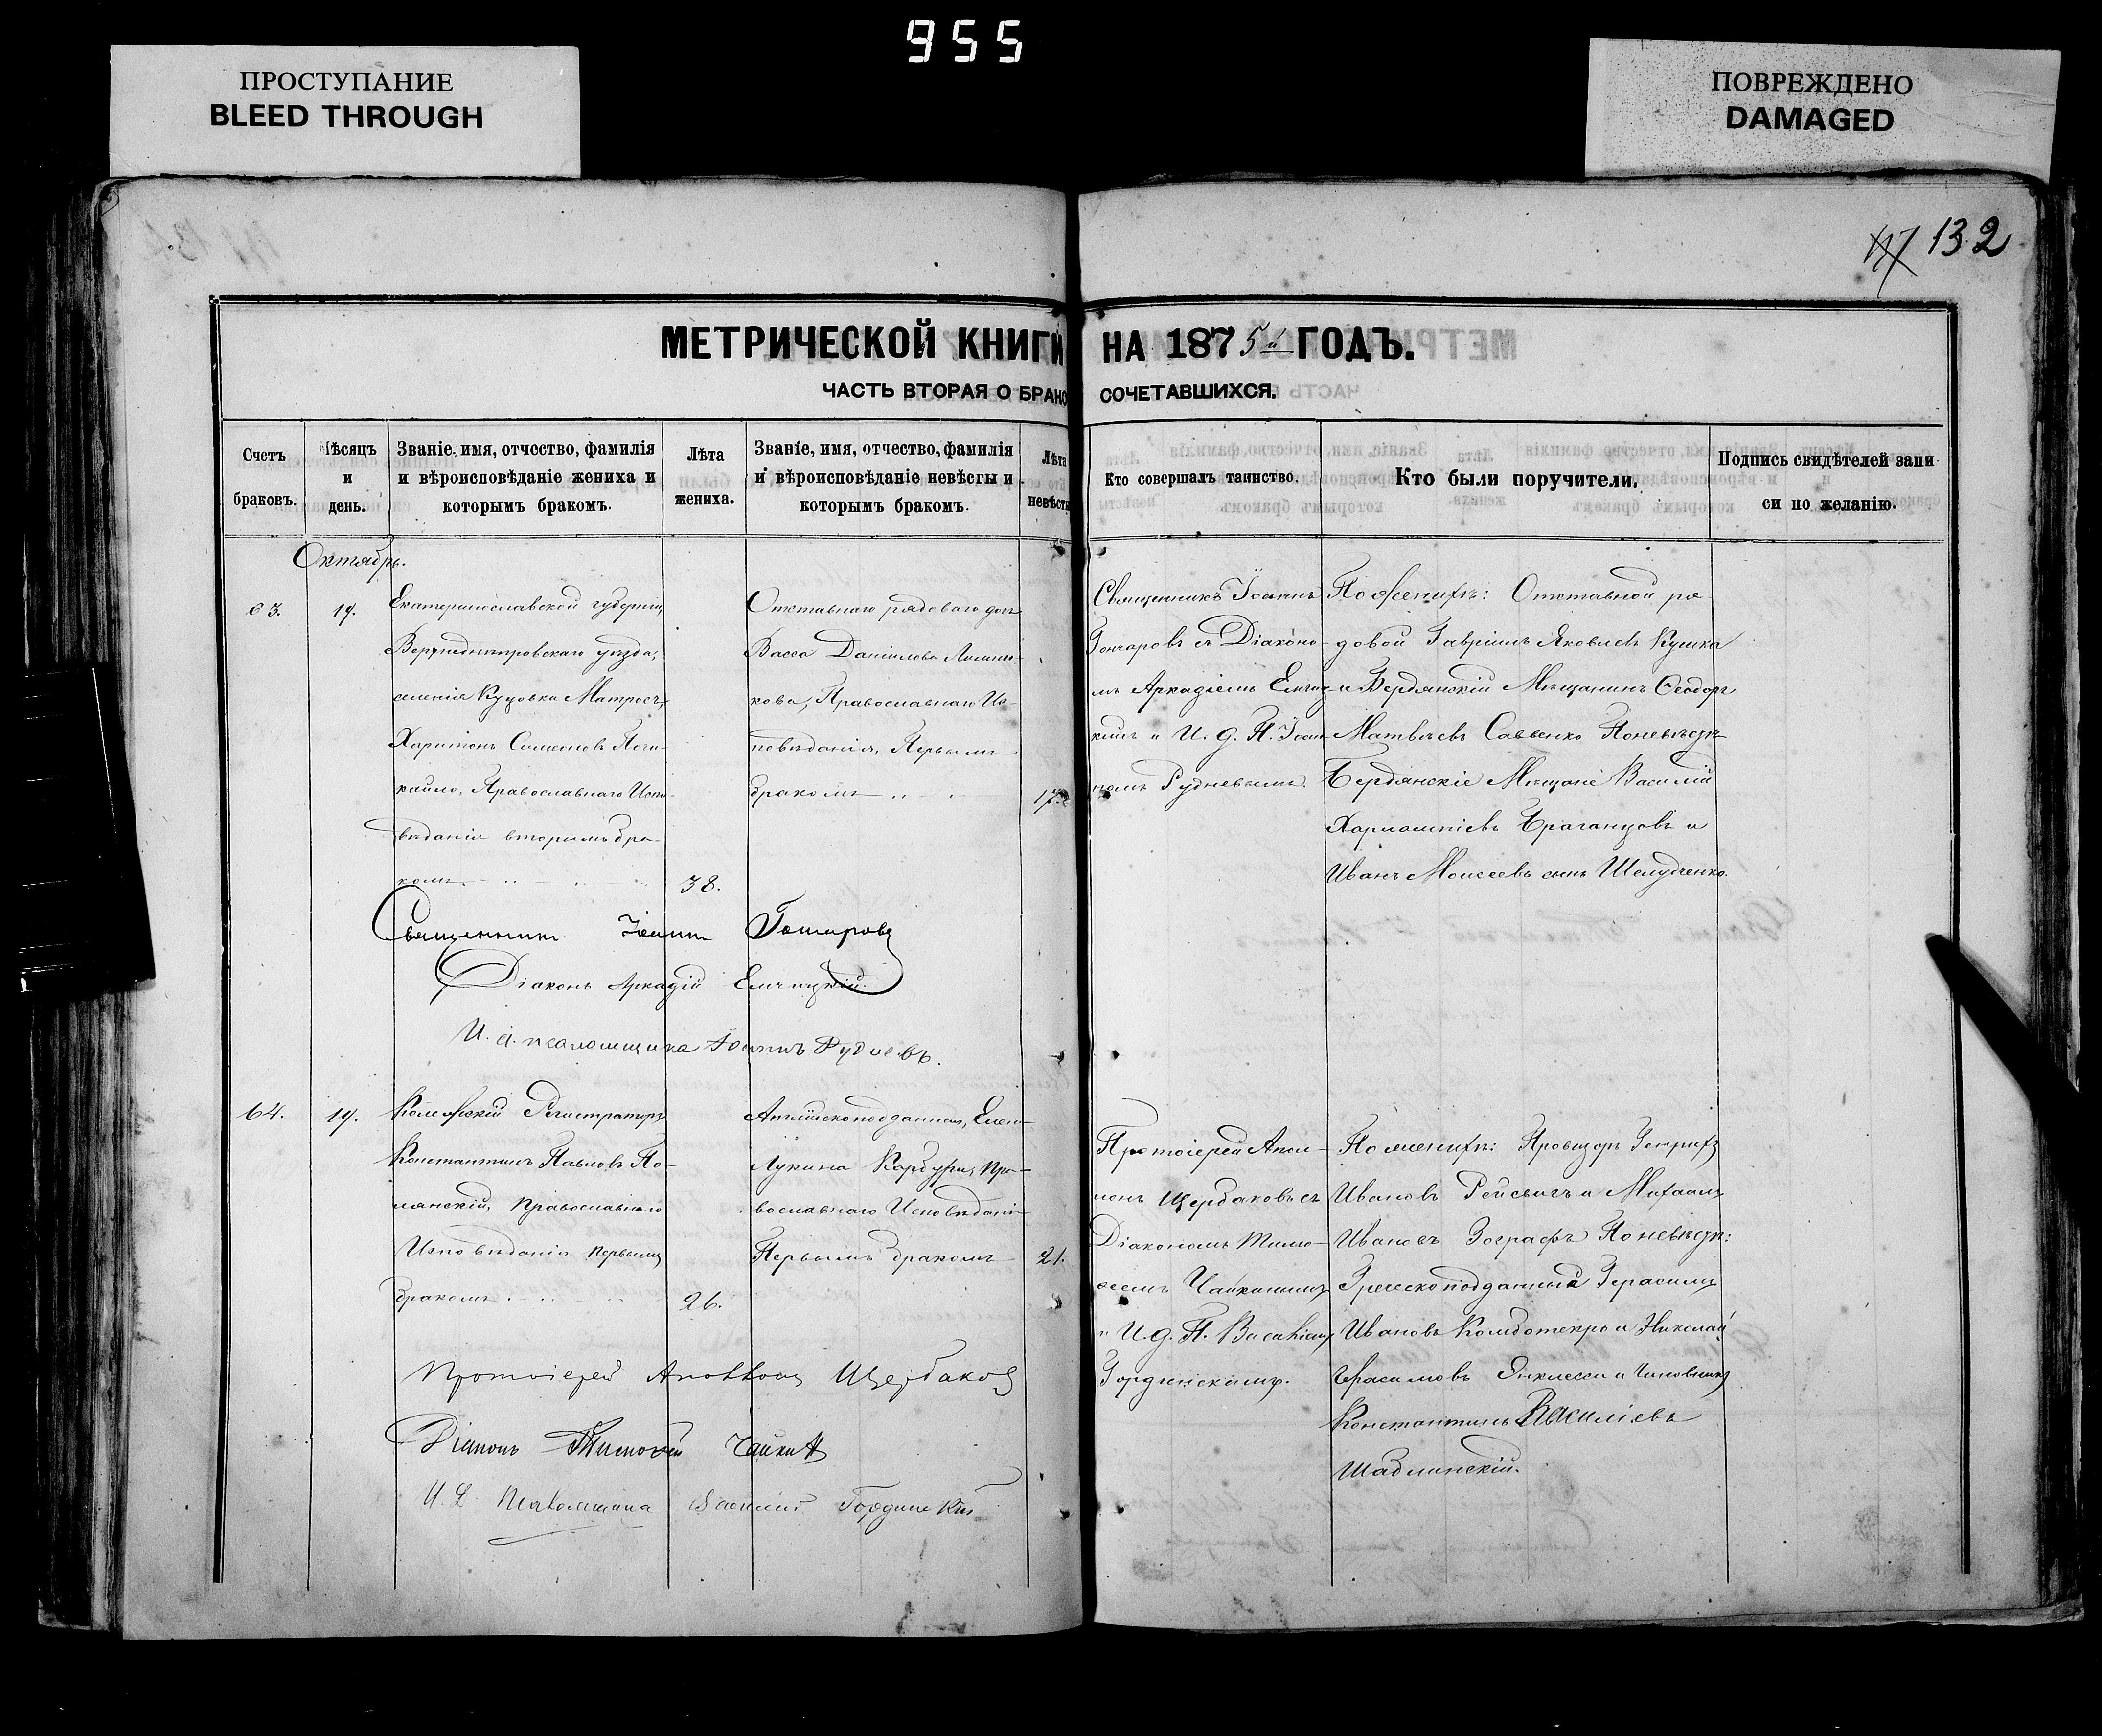 955
ПРОСТУПАНИЕ
BLEED THROUGH
ПОВРЕЖДЕНО
DAMAGED
132
МЕТРИЧЕСКОЙ КНИГИ НА 1875й ГОДЪ.
ЧАСТЬ ВТОРАЯ О БРАКОСОЧЕТАВШИХСЯ.
Счетъ
браковъ.
Мѣсяцъ
и
день.
Званіе, имя, отчество, фамилія
и вѣроисповѣданіе жениха и
которымъ бракомъ.
Лѣта
жениха.
Званіе, имя, отчество, фамилія
и вѣроисповѣданіе невѣсты и
которымъ бракомъ.
Лѣта
невѣсты
Кто совершалъ таинство.
Кто были поручители.
Подпись свидѣтелей запи
си по желанію.
Октябрь.
63.
19.
Екатеринославской губерніи
Верхнеднипровскаго уѣзда,
селенія Куцовки Матросъ,
Харитонъ Симеоновъ
православнаго Испо-
вѣданія вторымъ бра-
комъ
38.
Отставнаго рядоваго дочь
Васса Даніилова
кова, Православнаго Ис-
повѣданія, Первымъ
бракомъ
17.
Священникъ Іоаннъ
Гончаровъ съ Діаконо-
мъ Аркадіемъ
и И. д. П. Іоан-
номъ Рудневымъ.
По Женихѣ: Отставной ря-
довой Гавріилъ Яковлевъ Кушка
и Бердянскій Мѣщанинъ Ѳеодоръ
Матвѣевъ Савенко По невѣстѣ
Бердянскіе Мѣщане Василій
Харлампіевъ Браганцовъ и
Иванъ Моисеевъ сынъ Шелудченко.
Священникъ Іоаннъ Гончаровъ
Діаконъ Аркадій
И. д. псаломщика Іоаннъ Рудневъ.
64.
19.
Коллежскій Регистраторъ
Константинъ Павловъ По-
лянскій, Православнаго
Исповѣданія первымъ
бракомъ
26.
Англійскоподданная, Елена
Лукина Кардури, Пра-
вославнаго Исповѣданія
Первымъ бракомъ
21.
Протоіерей Апол-
лонъ Щербаковъ съ
Діакономъ Тимо-
ѳеемъ Чайкинымъ
и И. д. П. Василіемъ
Гординскимъ.
По женихѣ: Провизоръ Генрихъ
Ивановъ и Михаилъ
Ивановъ Зографъ По невѣстѣ:
Греческоподданный Герасимъ
Ивановъ и Николай
Герасимовъ и Чиновникъ
Константинъ Василіевъ
Шадлинскій.
Протоіерей Аполлонъ Щербаковъ
Діаконъ Тимоѳей Чайкинъ
И. д. Псаломщика Василій Гординскій